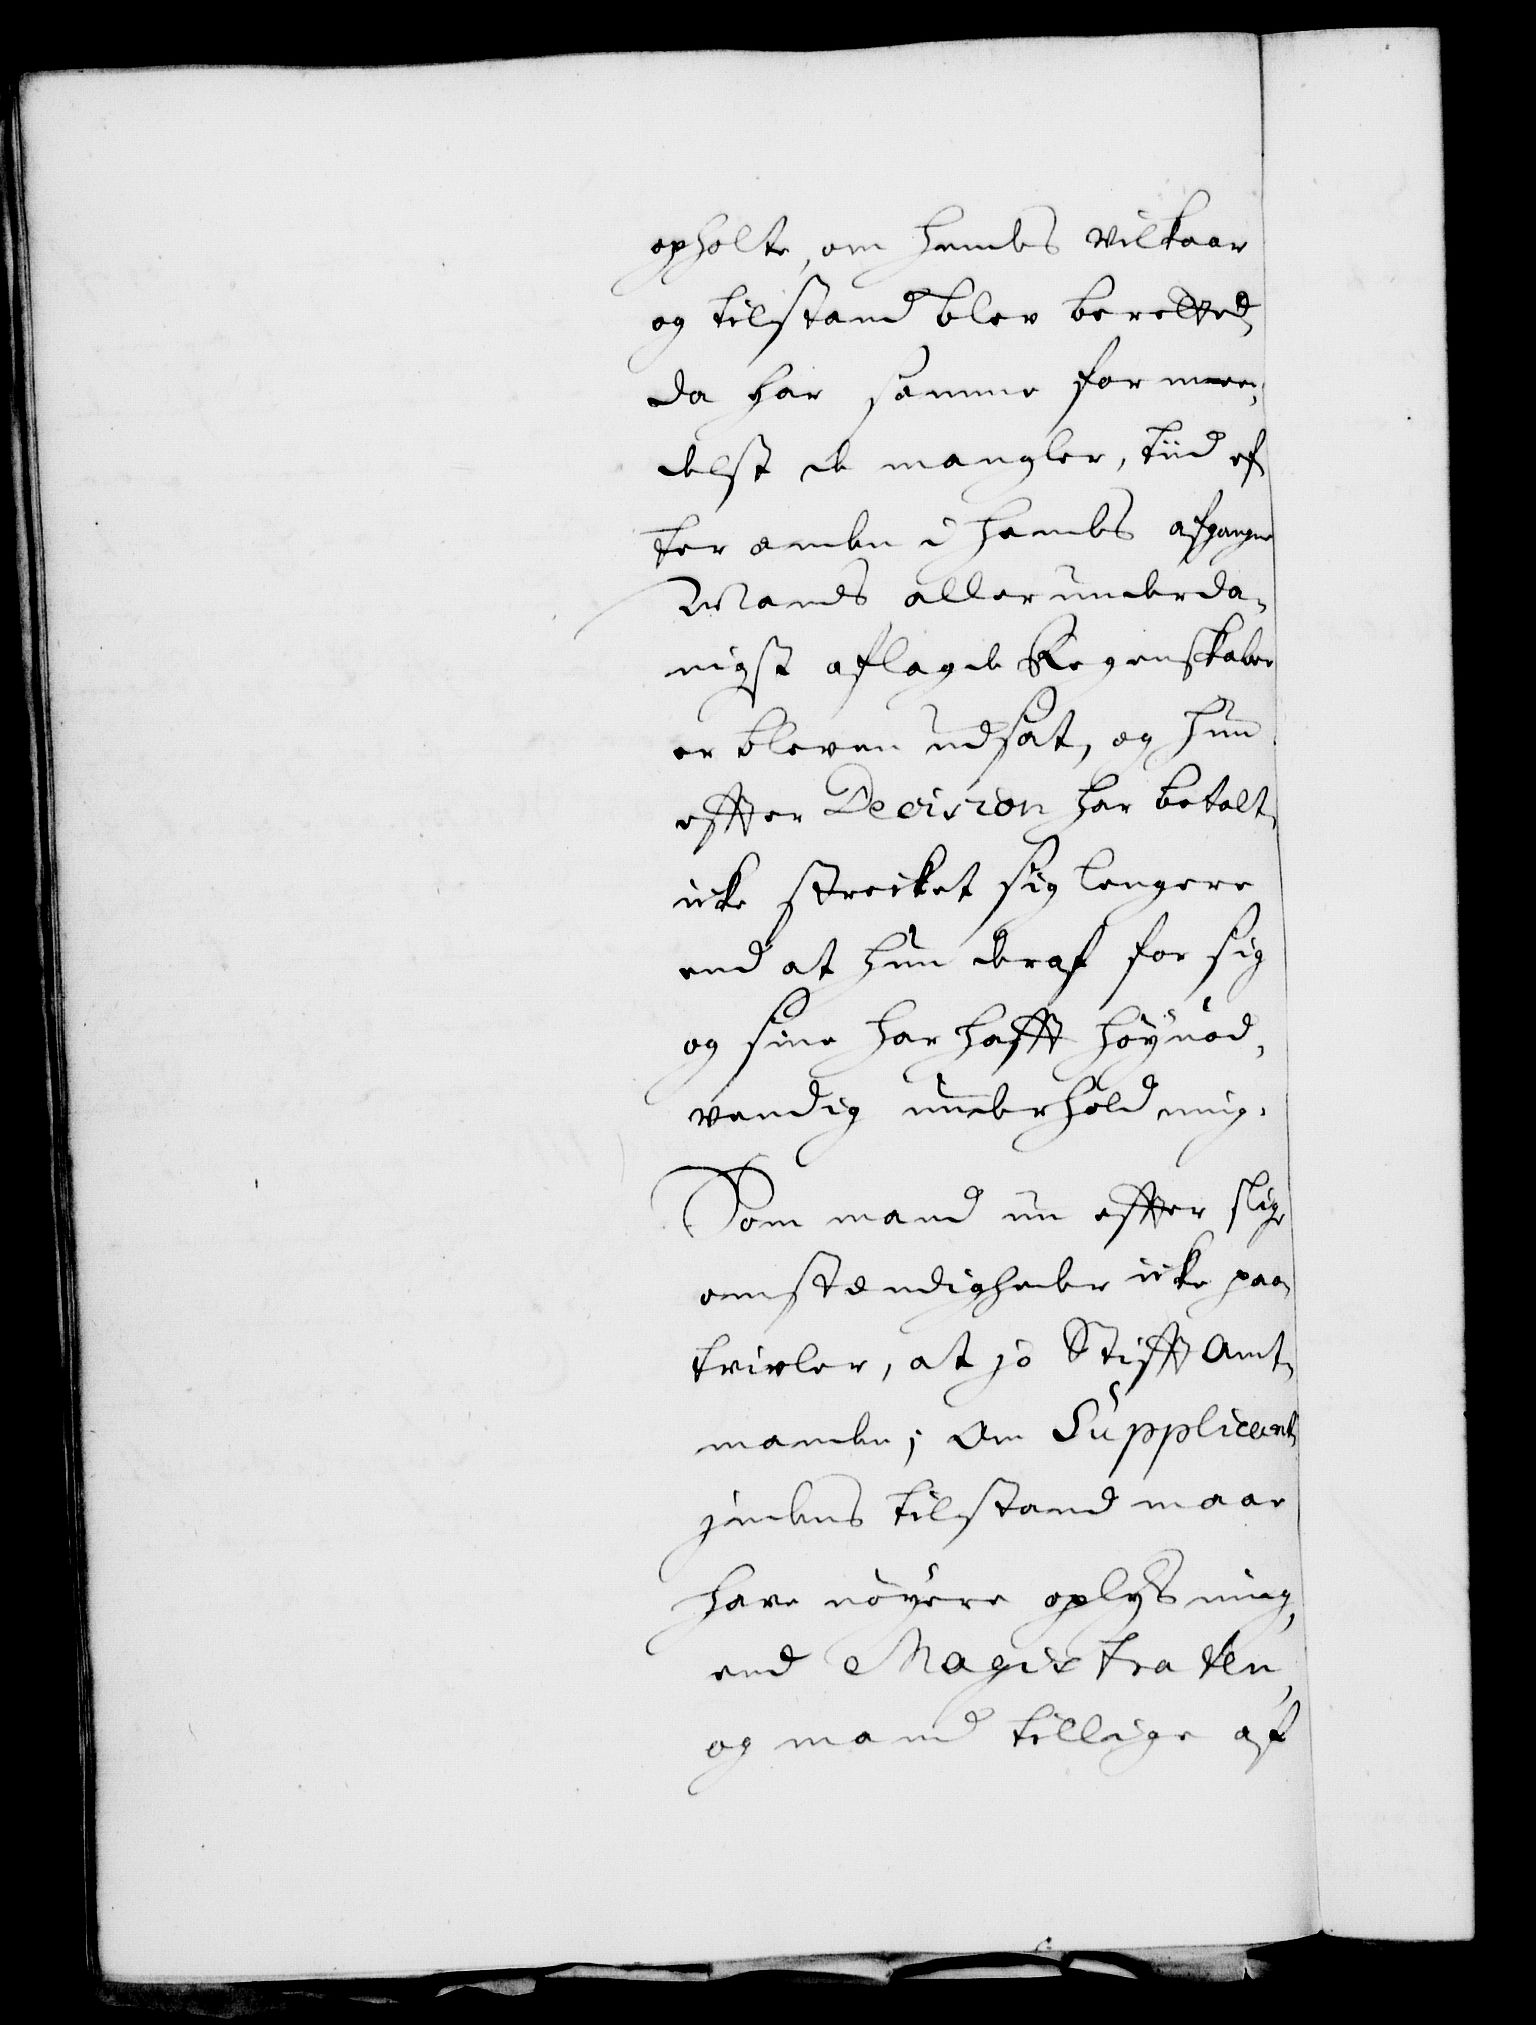 opholte, om hendes vilkaar
og tilstand blev beretted,
da har samme formee,
delst de mangler, tiid ef
ter anden i hendes afgangne
Mands allerunderda,
nigst aflagde Regenskaber
er bleven udsat, og hun
effter Decision har betalt,
icke strecket sig lengere
end at hun deraf for sig
og sine har hafft høynød,
vendig underholdning.
Som mand nu effter slige
omstændigheder icke paa,
tvivler, at jo Stifft Amt,
manden, om Supplicant,
indens tilstand maae
have nøyere oplysning,
end Magistraten,
og mand tillige af